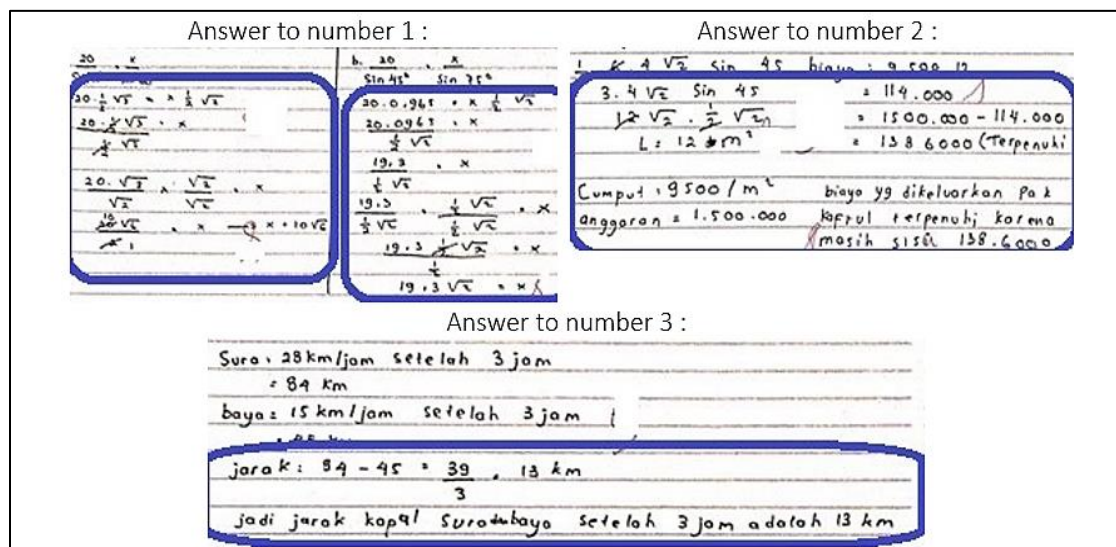 Answer to number 1 :
20 . x
20 . 1/2 √3 = x 1/2 √2
20 . 1/2 √3 = x
1/2 √2
20 . √3 × √2 = x
√2 √2
10
20 √6 = x → x = 10√6
2 1
b. 20 . x
Sin 45° Sin 75°
20 . 0,965 = x 1/2 √2
20 . 0965 = x
1/2 √2
19,3 = x
1/2 √2
19,3 . 1/2 √2 = x
1/2 √2 1/2 √2
19,3 1/2 √2 = x
1/2
19,3 √2 = x
Answer to number 2 :
4 √2 Sin 45 biaya = 9.500 . 12
3 . 4 √2 Sin 45 = 114.000
12 √2 . 1/2 √2 = 1500.000 - 114.000
L = 12 m² = 138 6000 (Terpenuhi
Cumput = 9500 / m² biaya yg dikeluarkan Pak
anggaran = 1.500.000 terpenuhi karena
masih sisa 138.6000
Answer to number 3 :
Sura = 28 km/jam setelah 3 jam
= 84 km
baya = 15 km/jam setelah 3 jam
jarak : 84 - 45 = 39 = 13 km
3
jadi jarak kapal Sura baya setelah 3 jam adalah 13 km